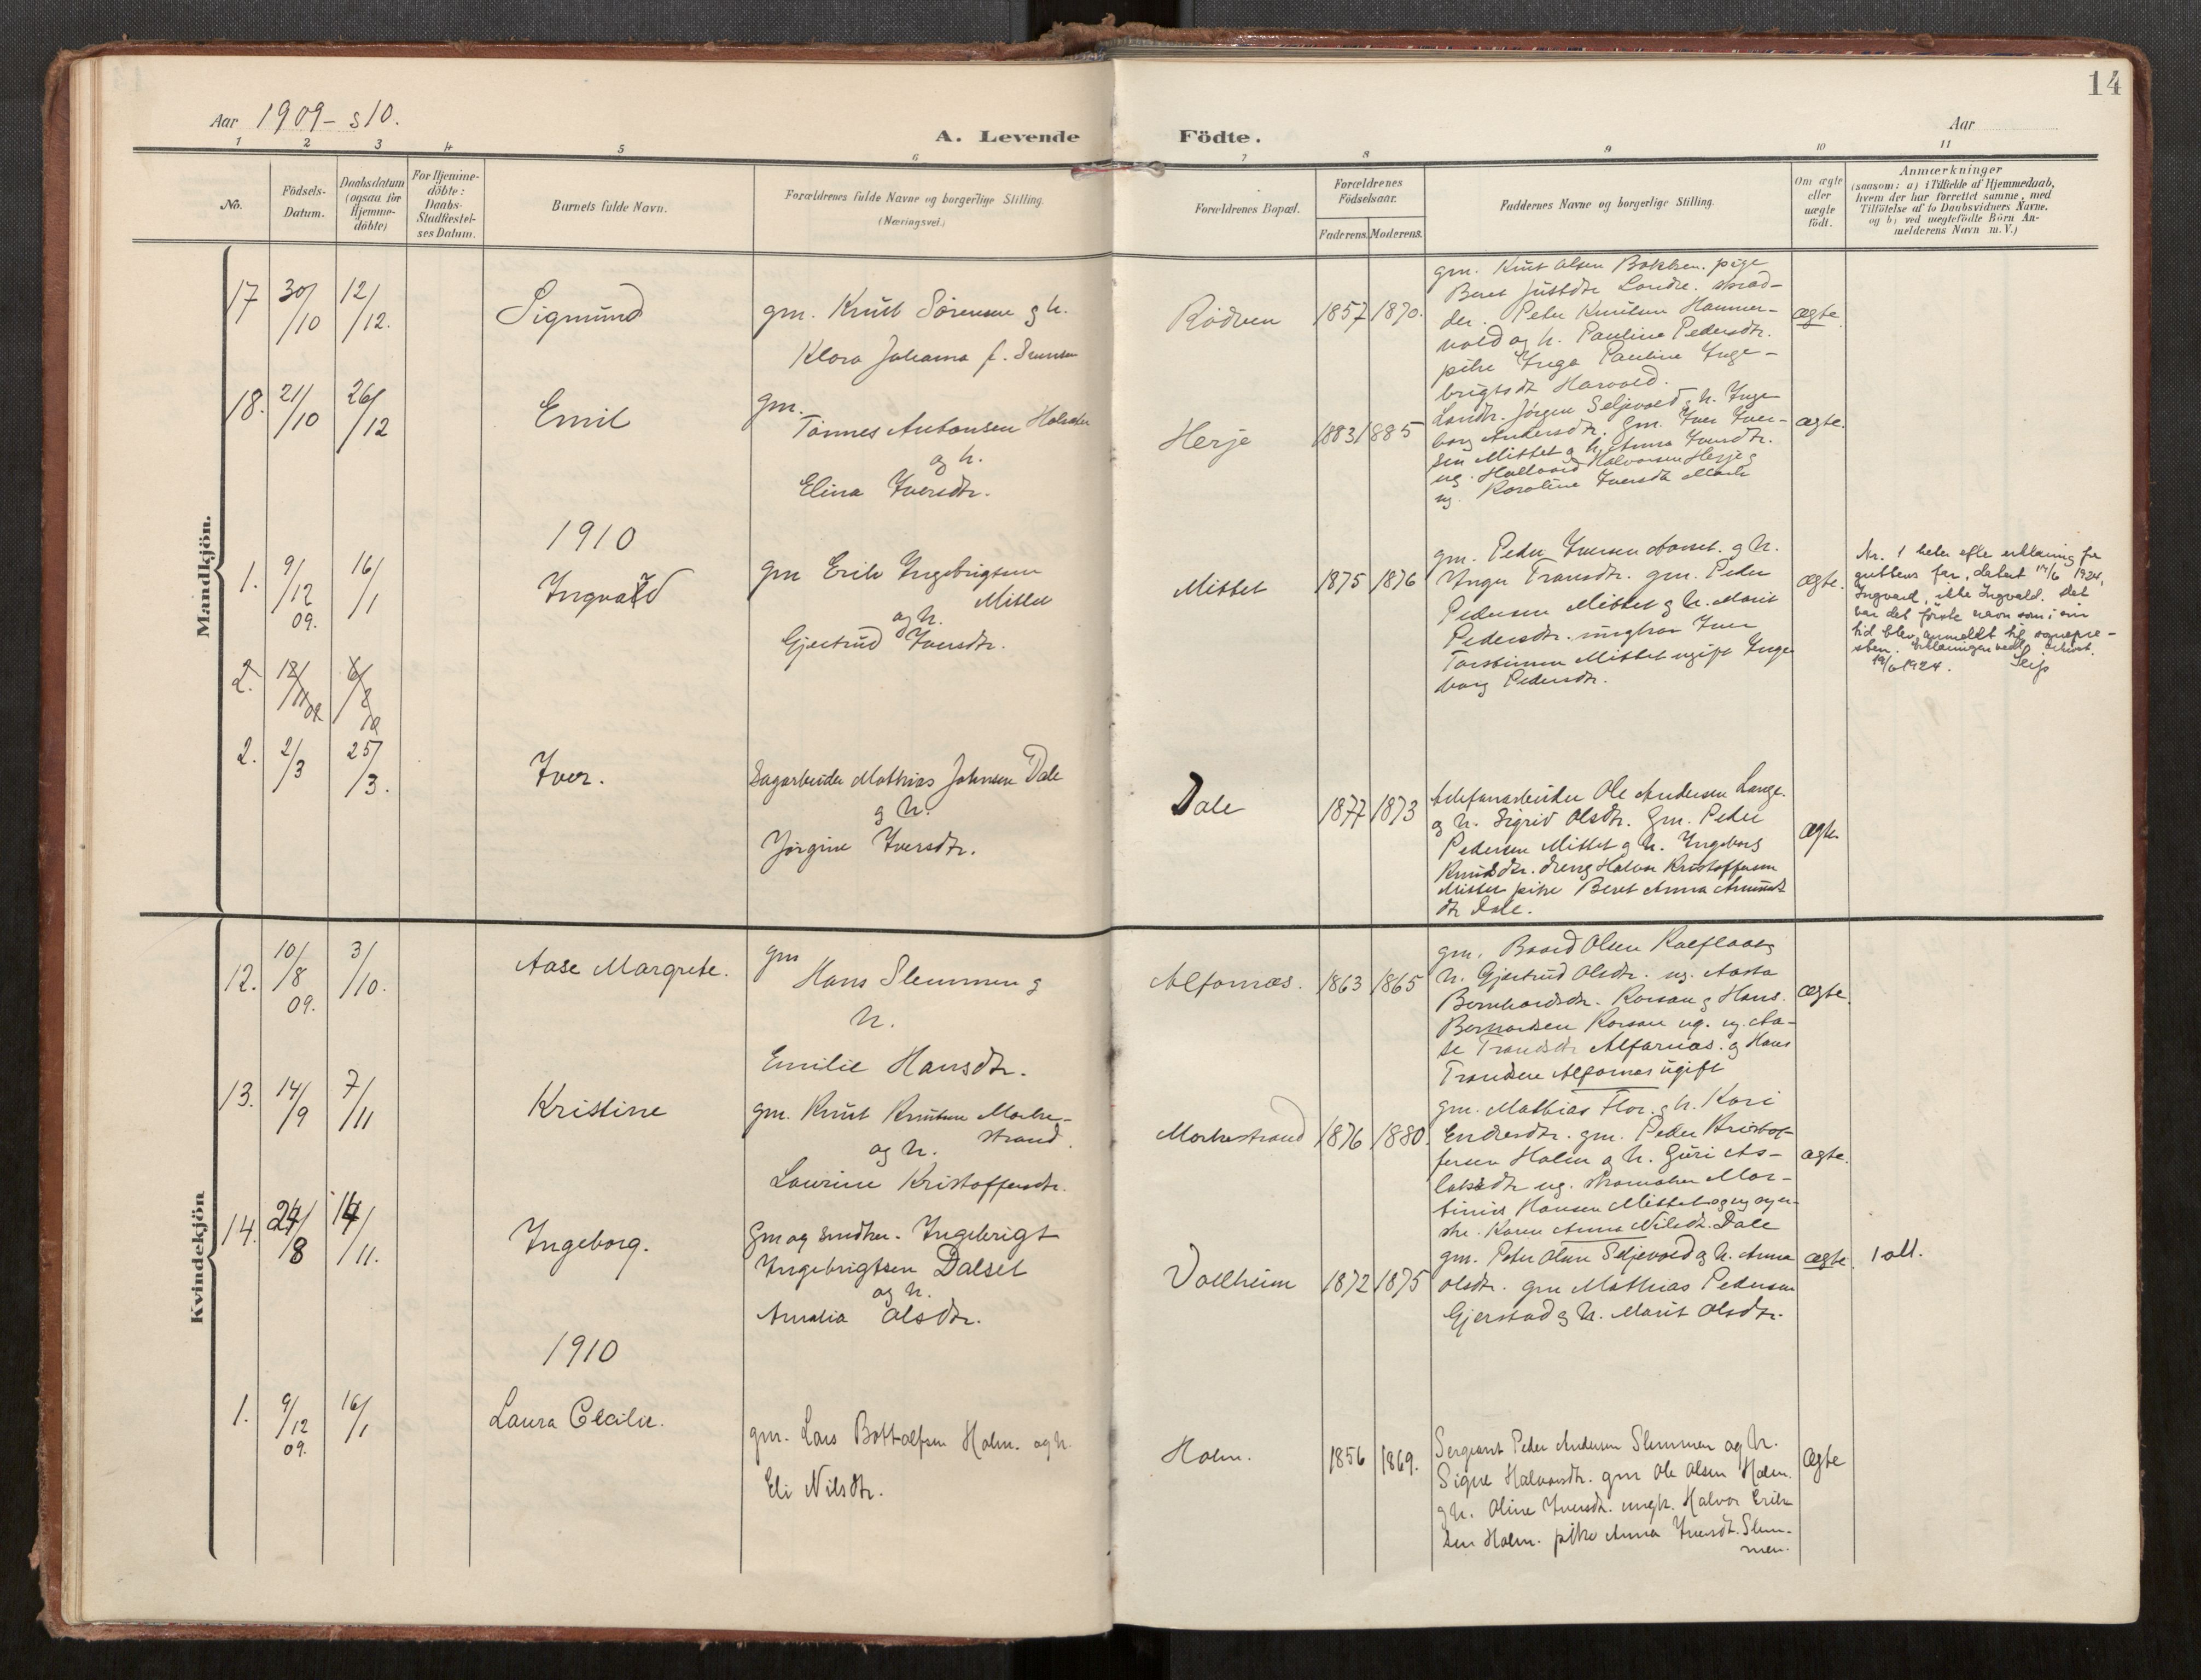 14
Aar 1909-s10.
A. Levende Födte.
Aar
1 2 3 4 5 6 7 8 9 10 11
No.
Födsels-
Datum.
Daabsdatum
(ogsaa for
Hjemme-
döbte)
For Hjemme-
döbte:
Daabs-
Stadfæstel-
ses Datum.
Barnets fulde Navn.
Forældrenes fulde Navne og borgerlige Stilling.
(Næringsvei.)
Forældrenes Bopæl.
Forældrenes
Födselsaar.
Faderens. Moderens.
Faddernes Navne og borgerlige Stilling.
Om ægte
eller
uægte
födt.
Anmærkninger
(saasom: a) i Tilfælde af Hjemmedaab,
hvem der har forrettet samme, med
Tilföielse af to Daabsvidners Navne,
og b) ved uægtefödte Börn An-
melderens Navn m. V.)
Mandkjön.
17 30/10 12/12. Sigmund
gm. Knut Sörensen g h.
Klara Johanna f.
Rödven 1857 1870.
gm. Knut Olsen Bakken. pige
Beret Justdtr
der. Peter Knutsen Hammer-
vold og h. Pauline Pedersdtr.
pike Inga Pauline Inge-
brigtsdt Harvold.
ægte.
18. 21/10 26/12 Emil
gm.
Tönnes Antonsen
og h.
Elina Iversdtr.
Herje 1883 1885
Jörgen Seljevold g h. Inge
borg Andersdtr. Gm. Iver Iver-
sen Mittet g h. Anna Iversdtr.
ug. Hallvard Halvorsen Herje g
ug. Karoline Iversdt
ægte.
1910
1. 9/12 09. 16/1 Ingvald
gm Erik Ingebrigtsen
Mittet
og h.
Gjertrud Iversdtr.
Mittet 1875 1876
gm. Peder Iversen g h.
Inger Transdtr. gm. Peder
Pedersen Mittet g h. Marit
Pedersdtr. ungkar Iver
Torstensen Mittet ugift Inge
borg Pedersdtr.
ægte.
Nr. 1 heter efter erklæring fra
guttens far, datert 17/6 1924,
Ingvard, ikke Ingvald. Det
var det förste navn som i sin
tid blev anmeldt til sognepre-
sten. Erklæringen vedl.
19/6 1924.
2. 12/11 09 6/2 10
2. 2/3 25/3. Iver.
Sagarbeider Mathias Johnsen Dale
g h.
Jörgine Iversdtr.
Dale 1877 1873
Telefonarbeider Ole Andersen Lange.
og h. Sigrid Olsdtr. Gm. Peder
Pedersen Mittet g h. Ingeborg
Knudsdtr. dreng Halvor Kristoffersen
Mittet pike Beret Anna
dtr Dale.
ægte
Kvindekjön
12. 10/8 09. 3/10. Aase Margrete.
gm
Hans Slemmen g
h.
Emilie Hansdtr.
Alfarnæs. 1863 1865
gm. Baard Olsen
h. Gjertrud Olsdtr. ug. Aasta
Bernhardsdtr. Korsan g Hans
Bernhardsen Korsan ug. ug. Aa-
se Trondsdtr Alfarnæs. og Hans
Trondsen Alfarnæs ugift
ægte.
13. 14/9 7/11 Kristine
gm. Knut Knutsen Morke-
strand.
og h.
Laurine Kristoffersdtr.
Morkestrand 1876 1880.
gm. Mathias Flor. g h. Kari
Endresdtr. gm. Peder Kristof-
fersen Holm g h. Guri As-
laksdtr ug. skomaker Mar-
tinus Hansen Mittet og ug syer-
ske. Karen Anna Nilsdt. Dale
ægte.
14. 24/8 14/11. Ingeborg.
Gm og smedker. Ingebrigt
Ingebrigtsen Dalset
og h.
Amalia Olsdtr.
Vollheim 1872 1875
gm. Peter Olsen Seljevold g h. Anna
Olsdtr. gm Mathias Pedersen
Gjerstad g h. Marit Olsdtr.
ægte 1 att.
1910
1. 9/12 09. 16/1 Laura Cecilie.
gm. Lars Bottolfsen Holm. og h.
Eli Nilsdtr.
Holm. 1856 1869.
Sergeant Peder Andersen Slemmen og h.
Signe Halvorsdtr. gm Ole Olsen Holm.
g h. Oline Iversdtr. ungk. Halvor Erik-
sen Holm. pike Anna Iversdt. Slem-
men.
ægte